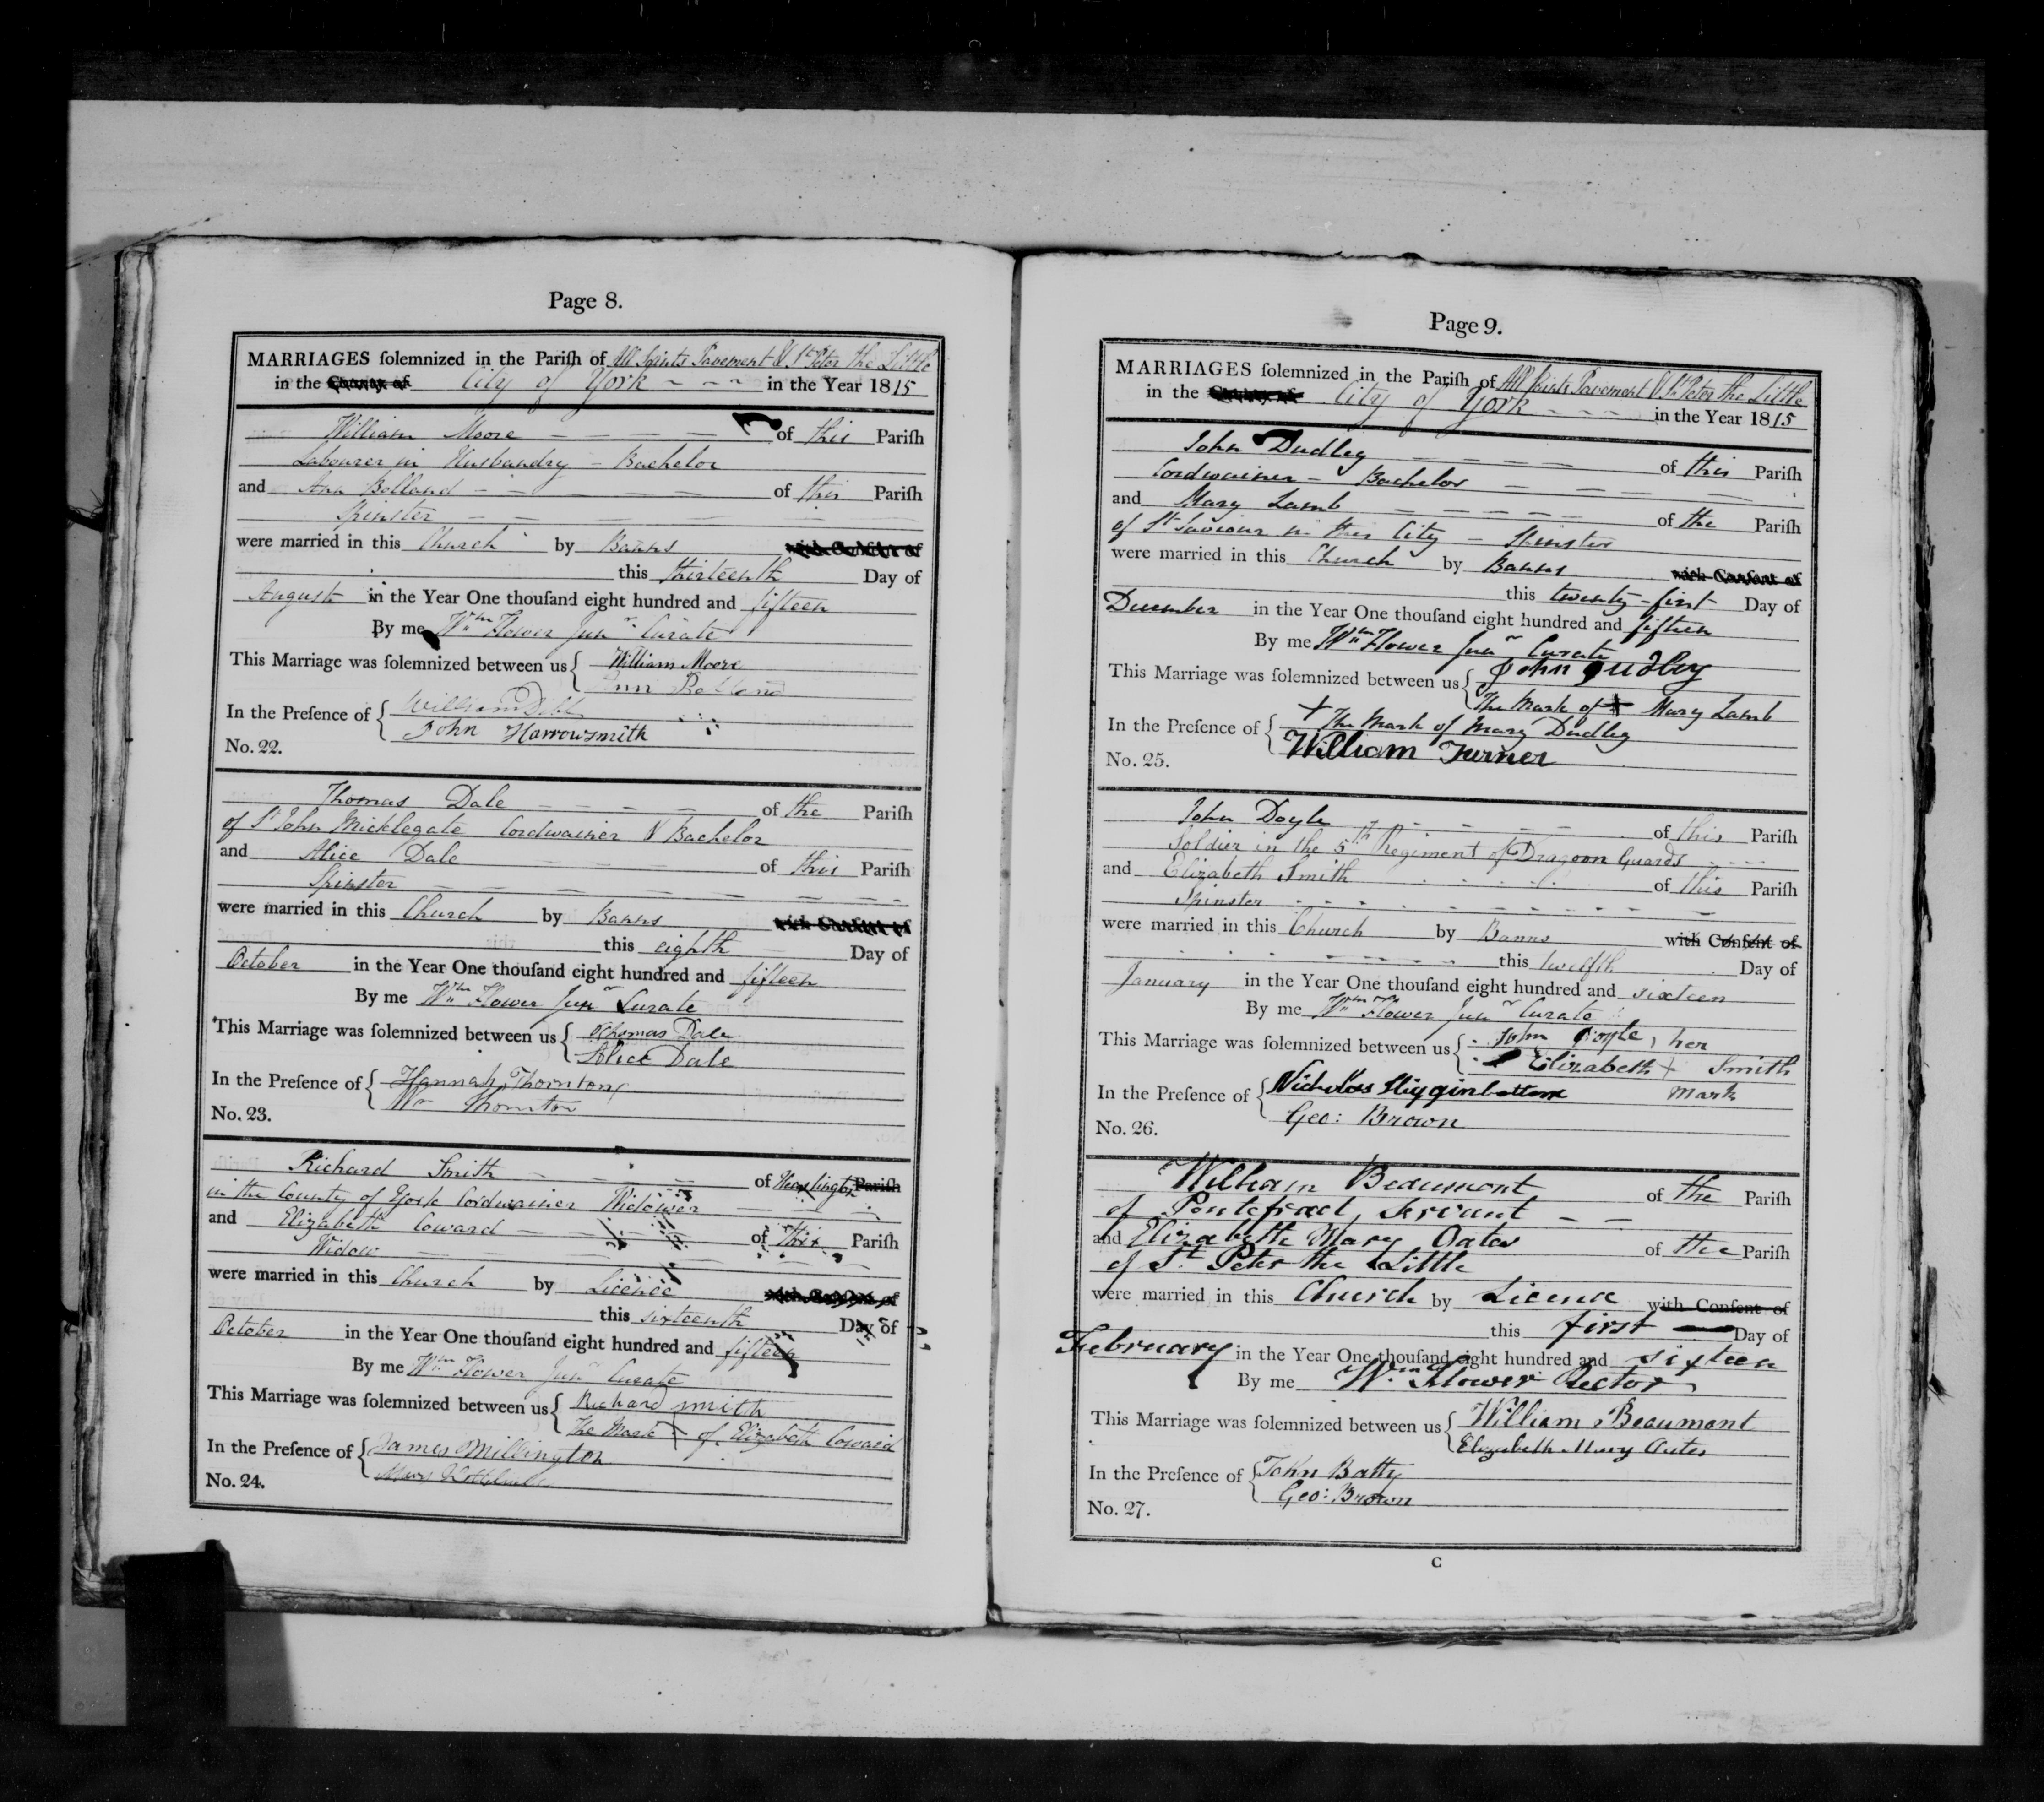 Page 8.
MARRIAGES ſolemnized in the Pariſh of All Saints Pavement & St Peter the Little
in the County of City of York - - - in the Year 1815
William Moore — — — — of this Pariſh
Labourer in Husbandry — Bachelor
and Ann Bolland — — — — of this Pariſh
Spinster — — — —
were married in this Church by Banns with Conſent of
this thirteenth Day of
August in the Year One thouſand eight hundred and fifteen
By me Wm Flower Junr Curate
This Marriage was ſolemnized between us { William Moore
Ann Bolland
In the Preſence of { William
John Harrowsmith
No. 22.
Thomas Dale — — — — of the Pariſh
of St John Micklegate Cordwainer & Bachelor
and Alice Dale of this Pariſh
Spinster — — — —
were married in this Church by Banns with Conſent of
this eighth Day of
October in the Year One thouſand eight hundred and fifteen
By me Wm Flower Junr Curate
This Marriage was ſolemnized between us { Thomas Dale
Alice Dale
In the Preſence of { Hannah Thornton
Wm Thornton
No. 23.
Richard Smith — — — of Heslington Pariſh
in the County of York Cordwainer Widower — — —
and Elizabeth Coward — — of this Pariſh
Widow — — — —
were married in this Church by Licence with Conſent of
this sixteenth Day of
October in the Year One thouſand eight hundred and fifteen
By me Wm Flower Junr Curate
This Marriage was ſolemnized between us { Richard Smith
The Mark X of Elizabeth Coward
In the Preſence of { James Millington
Mary
No. 24.
Page 9.
MARRIAGES ſolemnized in the Pariſh of All Saints Pavement & St Peter the Little
in the County of City of York - - - in the Year 1815
John Dudley — — — — of this Pariſh
Cordwainer — Bachelor — — — —
and Mary Lamb — — — — of the Pariſh
of St Saviour in this City — Spinster
were married in this Church by Banns with Conſent of
this twenty-first Day of
December in the Year One thouſand eight hundred and fifteen
By me Wm Flower Junr Curate
This Marriage was ſolemnized between us { John Dudley
The Mark of X Mary Lamb
In the Preſence of { X The Mark of Mary Dudley
William Turner
No. 25.
John Doyle - - - - of this Pariſh
Soldier in the 5th Regiment of Dragoon Guards - - - -
and Elizabeth Smith - - - - of this Pariſh
Spinster - - - -
were married in this Church by Banns with Conſent of
this twelfth Day of
January in the Year One thouſand eight hundred and sixteen
By me Wm Flower Junr Curate
This Marriage was ſolemnized between us { John Doyle, her
Elizabeth X Smith
In the Preſence of { Nicholas Higginbottom mark
Geo: Brown
No. 26.
William Beaumont of the Pariſh
of Pontefract, Servant — —
and Elizabeth Mary Oates of the Pariſh
of St. Peter the Little
were married in this Church by Licence with Conſent of
this first — Day of
February in the Year One thouſand eight hundred and sixteen
By me Wm Flower Rector
This Marriage was ſolemnized between us { William Beaumont
Elizabeth Mary Oates
In the Preſence of { John Batty
Geo: Brown
No. 27.
C